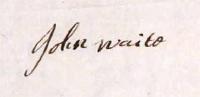 John waite